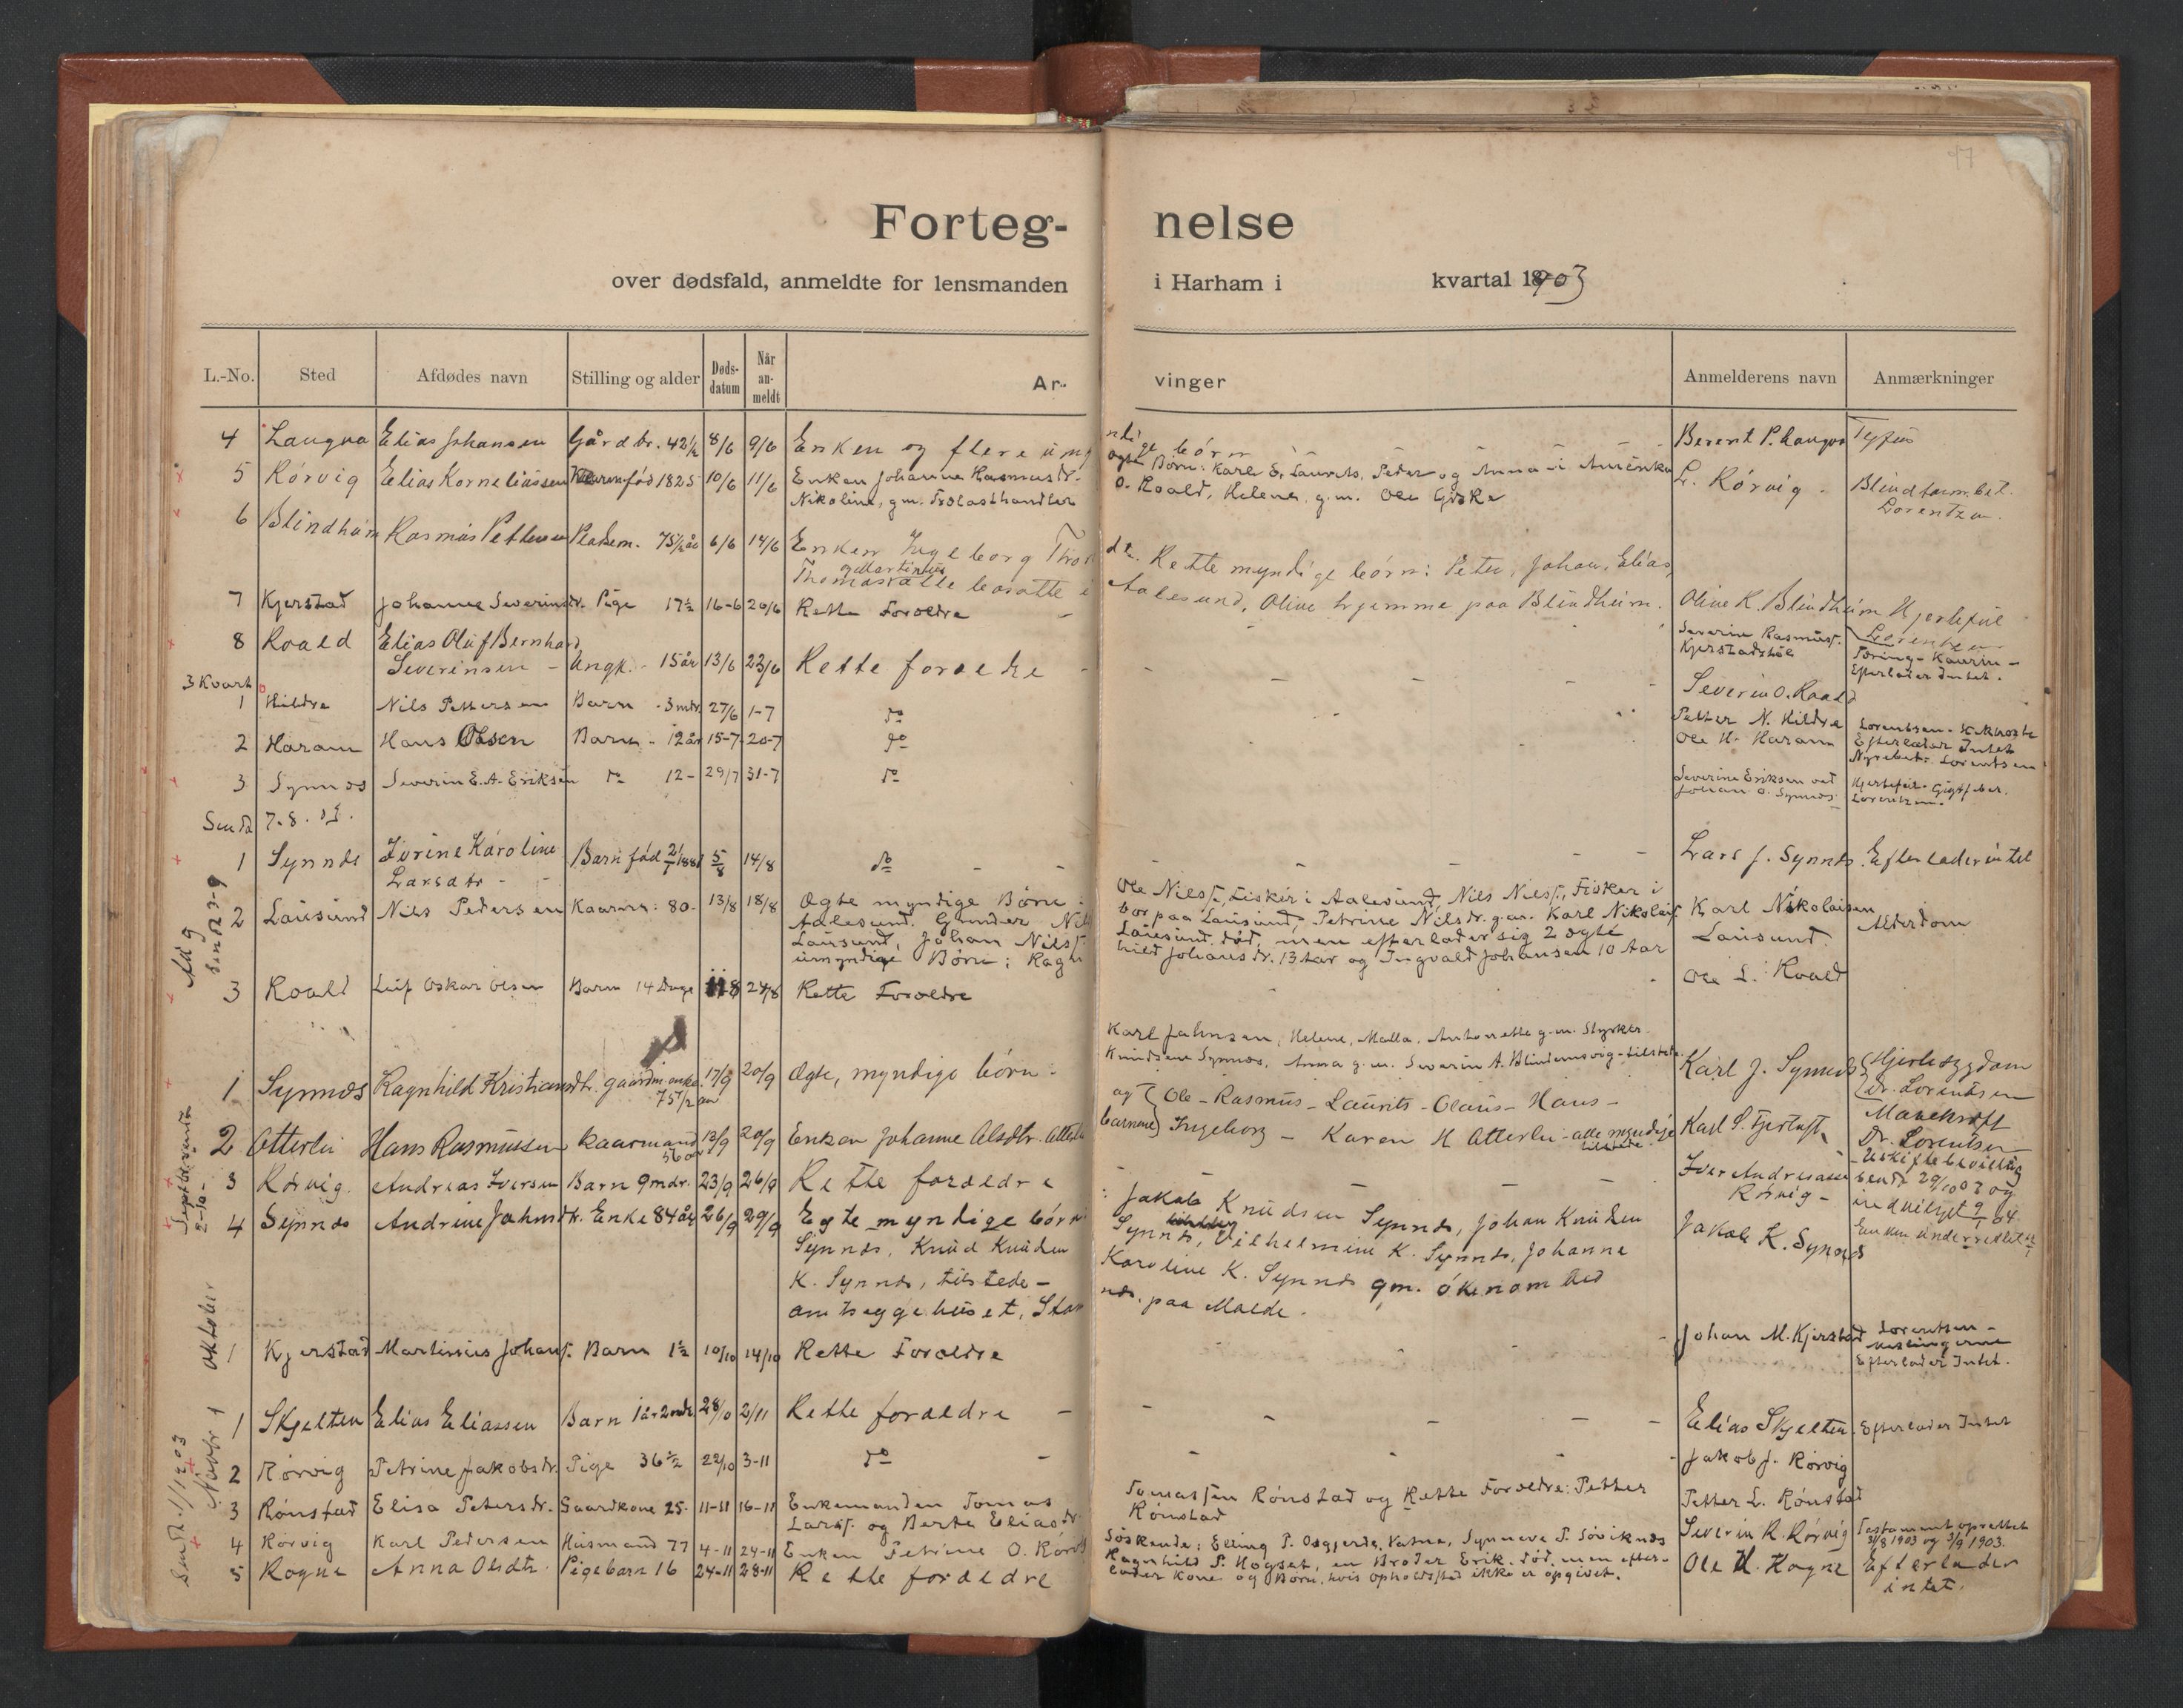 97
Forteg- nelse
over dødsfald, anmeldte for lensmanden i Harham i kvartal 1903
L.-No. Sted Afdødes navn Stilling og alder Døds-datum Når an-meldt Ar- vinger Anmelderens navn Anmærkninger
4 Laugva Elias Johansen Gårdbr. 42½ 8/6 9/6 Enken og flere umyndige børn Berent P. Laugva Tyfus
5 Rørvig Elias Korneliussen Kaarm fød 1825 10/6 11/6 Enken Johanne Rasmusdr. ogte Børn: Karl E, Laurits, Peder og Anna i Amerika L. Rørvig Blindtarm.bet.
Nikoline, g.m. O. Roald, Helene, g.m. Ole Giske Lorentzen
6 Blindheim Rasmus Pettersen Pladsm. 75½ år 6/6 14/6 Enken Ingeborg dtr. Rette myndige børn: Peter, Johan, Elias,
Thomas og Martinus alle bosatte i Aalesund, Oline hjemme paa Blindheim. Oline R. Blindheim Hjertefeil
Lorentzen
7 Kjerstad Johanne Severinsdr. Pige 17½ 16-6 20/6 Rette Forældre Severin Rasmuss. Kjerstadstøl Tæring - Kaurin - Efterlader Intet.
8 Roald Elias Oluf Bernhard
Severinsen Ungk. 15 år 13/6 23/6 Rette forældre Severin O. Roald
3 Kvart
1 Hildre Nils Pettersen Barn 3 mdr. 27/6 1-7 do Petter N. Hildre Lorentsen
2 Haram Hans Olsen Barn 12 år 15-7 20-7 do Ole H. Haram Efterlader Intet
Nyrebet. Lorentsen
3 Synnæs Severin E. A. Eriksen do 12 29/7 31-7 do Severine Eriksen ved
Johan O. Synnæs Hjertefeil - Gigtfeber.
Lorentzen.
Sendt 7-8. 03.
1 Synnæs Karoline
Larsdtr Barn fød 2/1 1888 5/8 14/8 do Lars J. Synnæs Efterlader intet
Aug
Sendt 3-9
2 Lausund Nils Pedersen Kaarm: 80 13/8 18/8 Ægte myndige Børn: Ole Nilss., Fisker i Aalesund, Nils Nilss., Fisker i
Aalesund. Gunder bor paa Lausund, Petrine Nilsdr. g.m. Karl Nikolais. Karl Nikolaisen Alderdom
Lausund, Johan Nilss. Lausund. død, men efterlader sig 2 ægte Lausund.
umyndige Børn: Ragnhild Johansdr. 13 Aar og Ingvald Johansen 10 Aar
3 Roald Leif Oskar Olsen Barn 14 Dage 8 28/8 Rette Forældre Ole L. Roald
Karl Jahnsen, Helene, Malla, Antonette g.m. Styrker
Knudsen Synnæs, Anna g.m. Severin A. Blindemsvig - tilstede
1 Synnæs Ragnhild Kristiansdtr. gaardm. enke 75½ aar 17/9 20/9 Ægte, myndige børn: Karl J. Synnæs Hjertesygdom
dr. Lorentsen
Septbr sendt 2-10-
2 Otterlei Hans Rasmussen Kaarmand 56 aar 13/9 20/9 Enken Johanne Olsdtr. og børnene Ole - Rasmus - Laurits - Olaus - Hans -
Ingeborg - Karen H Otterlei - alle myndige tilstede Karl P. Fjørtoft Mavekræft
Dr. Lorentsen
Uskiftebevilling
sendt 29/10 03 og
indvilget 9/1 04
Enken underrettet
3 Rørvig Andreas Iversen Barn 9 mdr. 23/9 26/9 Rette forældre Iver Andreasen
Rørvig -
4 Synnæs Andrine Jahnsdtr. Enke 84 år 26/9 29/9 Egte myndige børn: Jakob Knudsen Synnæs, Johan Knudsen Jakob K. Synnæs
Synnæs, Knud Knudsen Synnæs, Vilhelmine K. Synnæs, Johanne
K. Synnæs, tilstede - Karoline K. Synnæs gm. økenom ved
amtsygehuset, paa Molde.
Oktober
1 Kjerstad Martinius Johans. Barn 1½ 10/10 14/10 Rette Forældre Johan M. Kjerstad Lorentsen -
Efterlader Intet.
Novbr
Sendt 1/12 03
1 Skjelten Elias Eliassen Barn 1 år 2 mdr 28/10 2/11 Rette forældre Elias Skjelten Efterlader Intet
2 Rørvig Petrine Jakobsdr. Pige 36½ 22/10 3-11 do Jakob J. Rørvig
3 Rønstad Elisa Petersdr. Gaardkone 25 11-11 16-11 Enkemanden Tomas Tomassen Rønstad og Rette Forældre: Petter Petter L. Rønstad
Larss. og Berte Eliasdr. Rønstad
4 Rørvig Karl Pedersen Husmand 77 4-11 24-11 Enken Petrine O. Rørvig Søskende: Elling P. Osgjerde, Vatne, Synneve P. Søviknæs Severin R. Rørvig Testament oprettet
3/8 1903 og 3/9 1903.
Ragnhild P. Hogset, en Broder Erik. død, men efter-
lader Kone og Børn, hvis opholdssted ikke er opgivet.
5 Rogne Anna Olsdtr. Pigebarn 16 24-11 28-11 Rette forældre Ole H. Rogne Efterlader
intet.